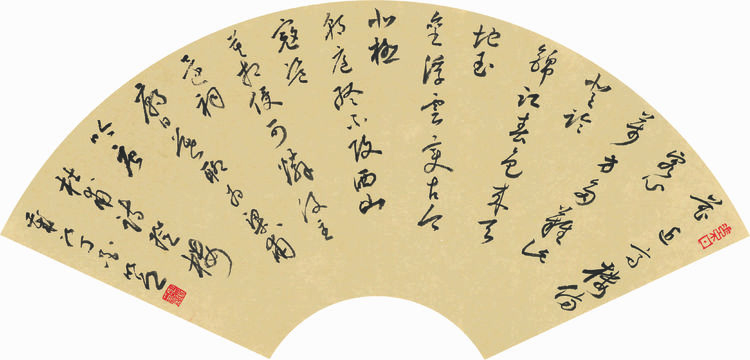 花近高樓傷
客心
萬方多難此
登臨
錦江春色來天
地玉
壘浮雲變古今
北極
朝廷終不改西山
寇盜
莫相侵可憐後主
還祠
廟日暮聊為梁甫
吟唐
杜甫詩登樓